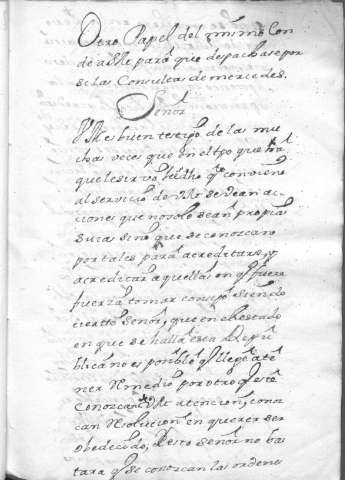 Otro Papel del mismo Con
de a SM. para que despachase por
si las Consultas de mercedes.
Señor
VM. es buen testigo de las mu
chas veces que en el tpo que
que le sirvo he dho qe conviene
al servicio de VM. se vean ac
ciones que no solo sean propias
suias sino que se conozcan
por tales para acreditarse, y
acreditar a aquellas en qe fuere
fuerza tomar consejo siendo
cierto Señor, que en el estado
en que se halla esta Repu
blica no es posible qe llegue a te
ner Remedio por otro qe este
conozcan VM. atencion, conoz
can Resolucion en querer ser
obedecido, Y esto Señor no bas
tara qe se conozcan las ordenes